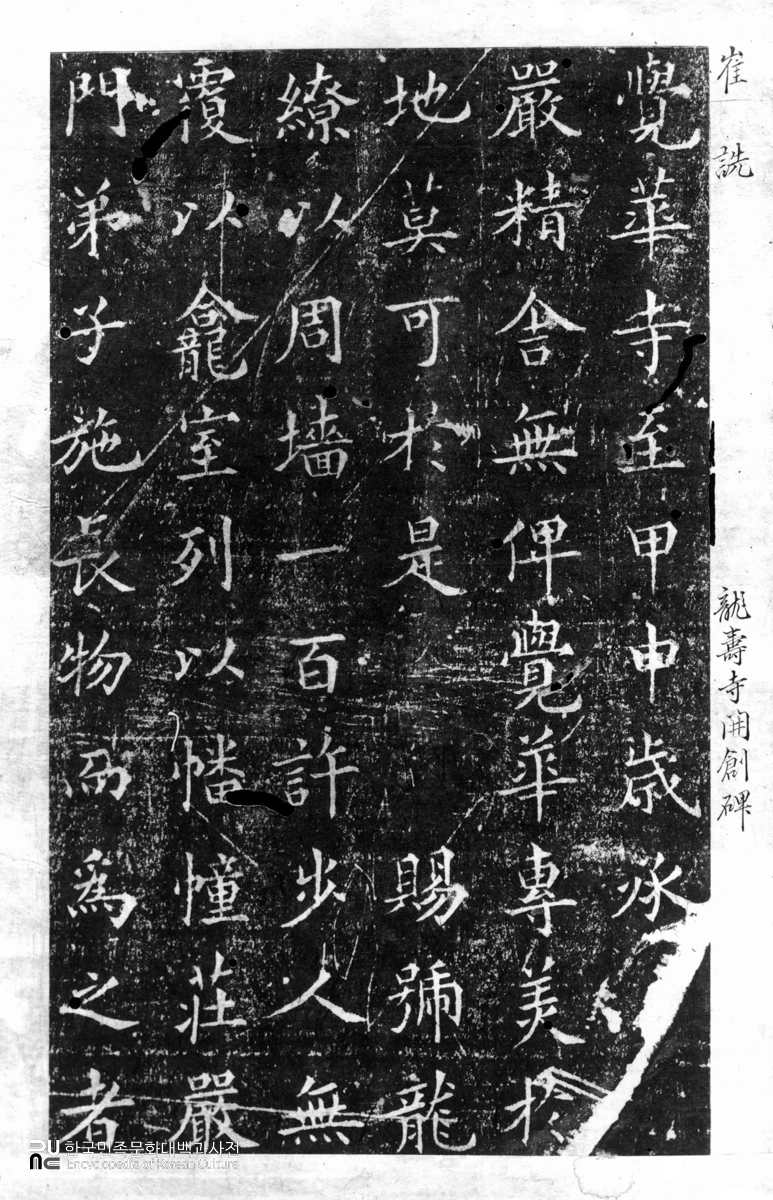 崔 詵
龍壽寺開創碑
覺華寺至甲申歲
嚴精舍無俾覺華專美於
地莫可於是 賜號龍
繚以周墻一百許步人無
覆以龕室列以幡幢莊嚴
門弟子施長物而爲之者
한국민족문화대백과사전
Encyclopedia of Korean Culture